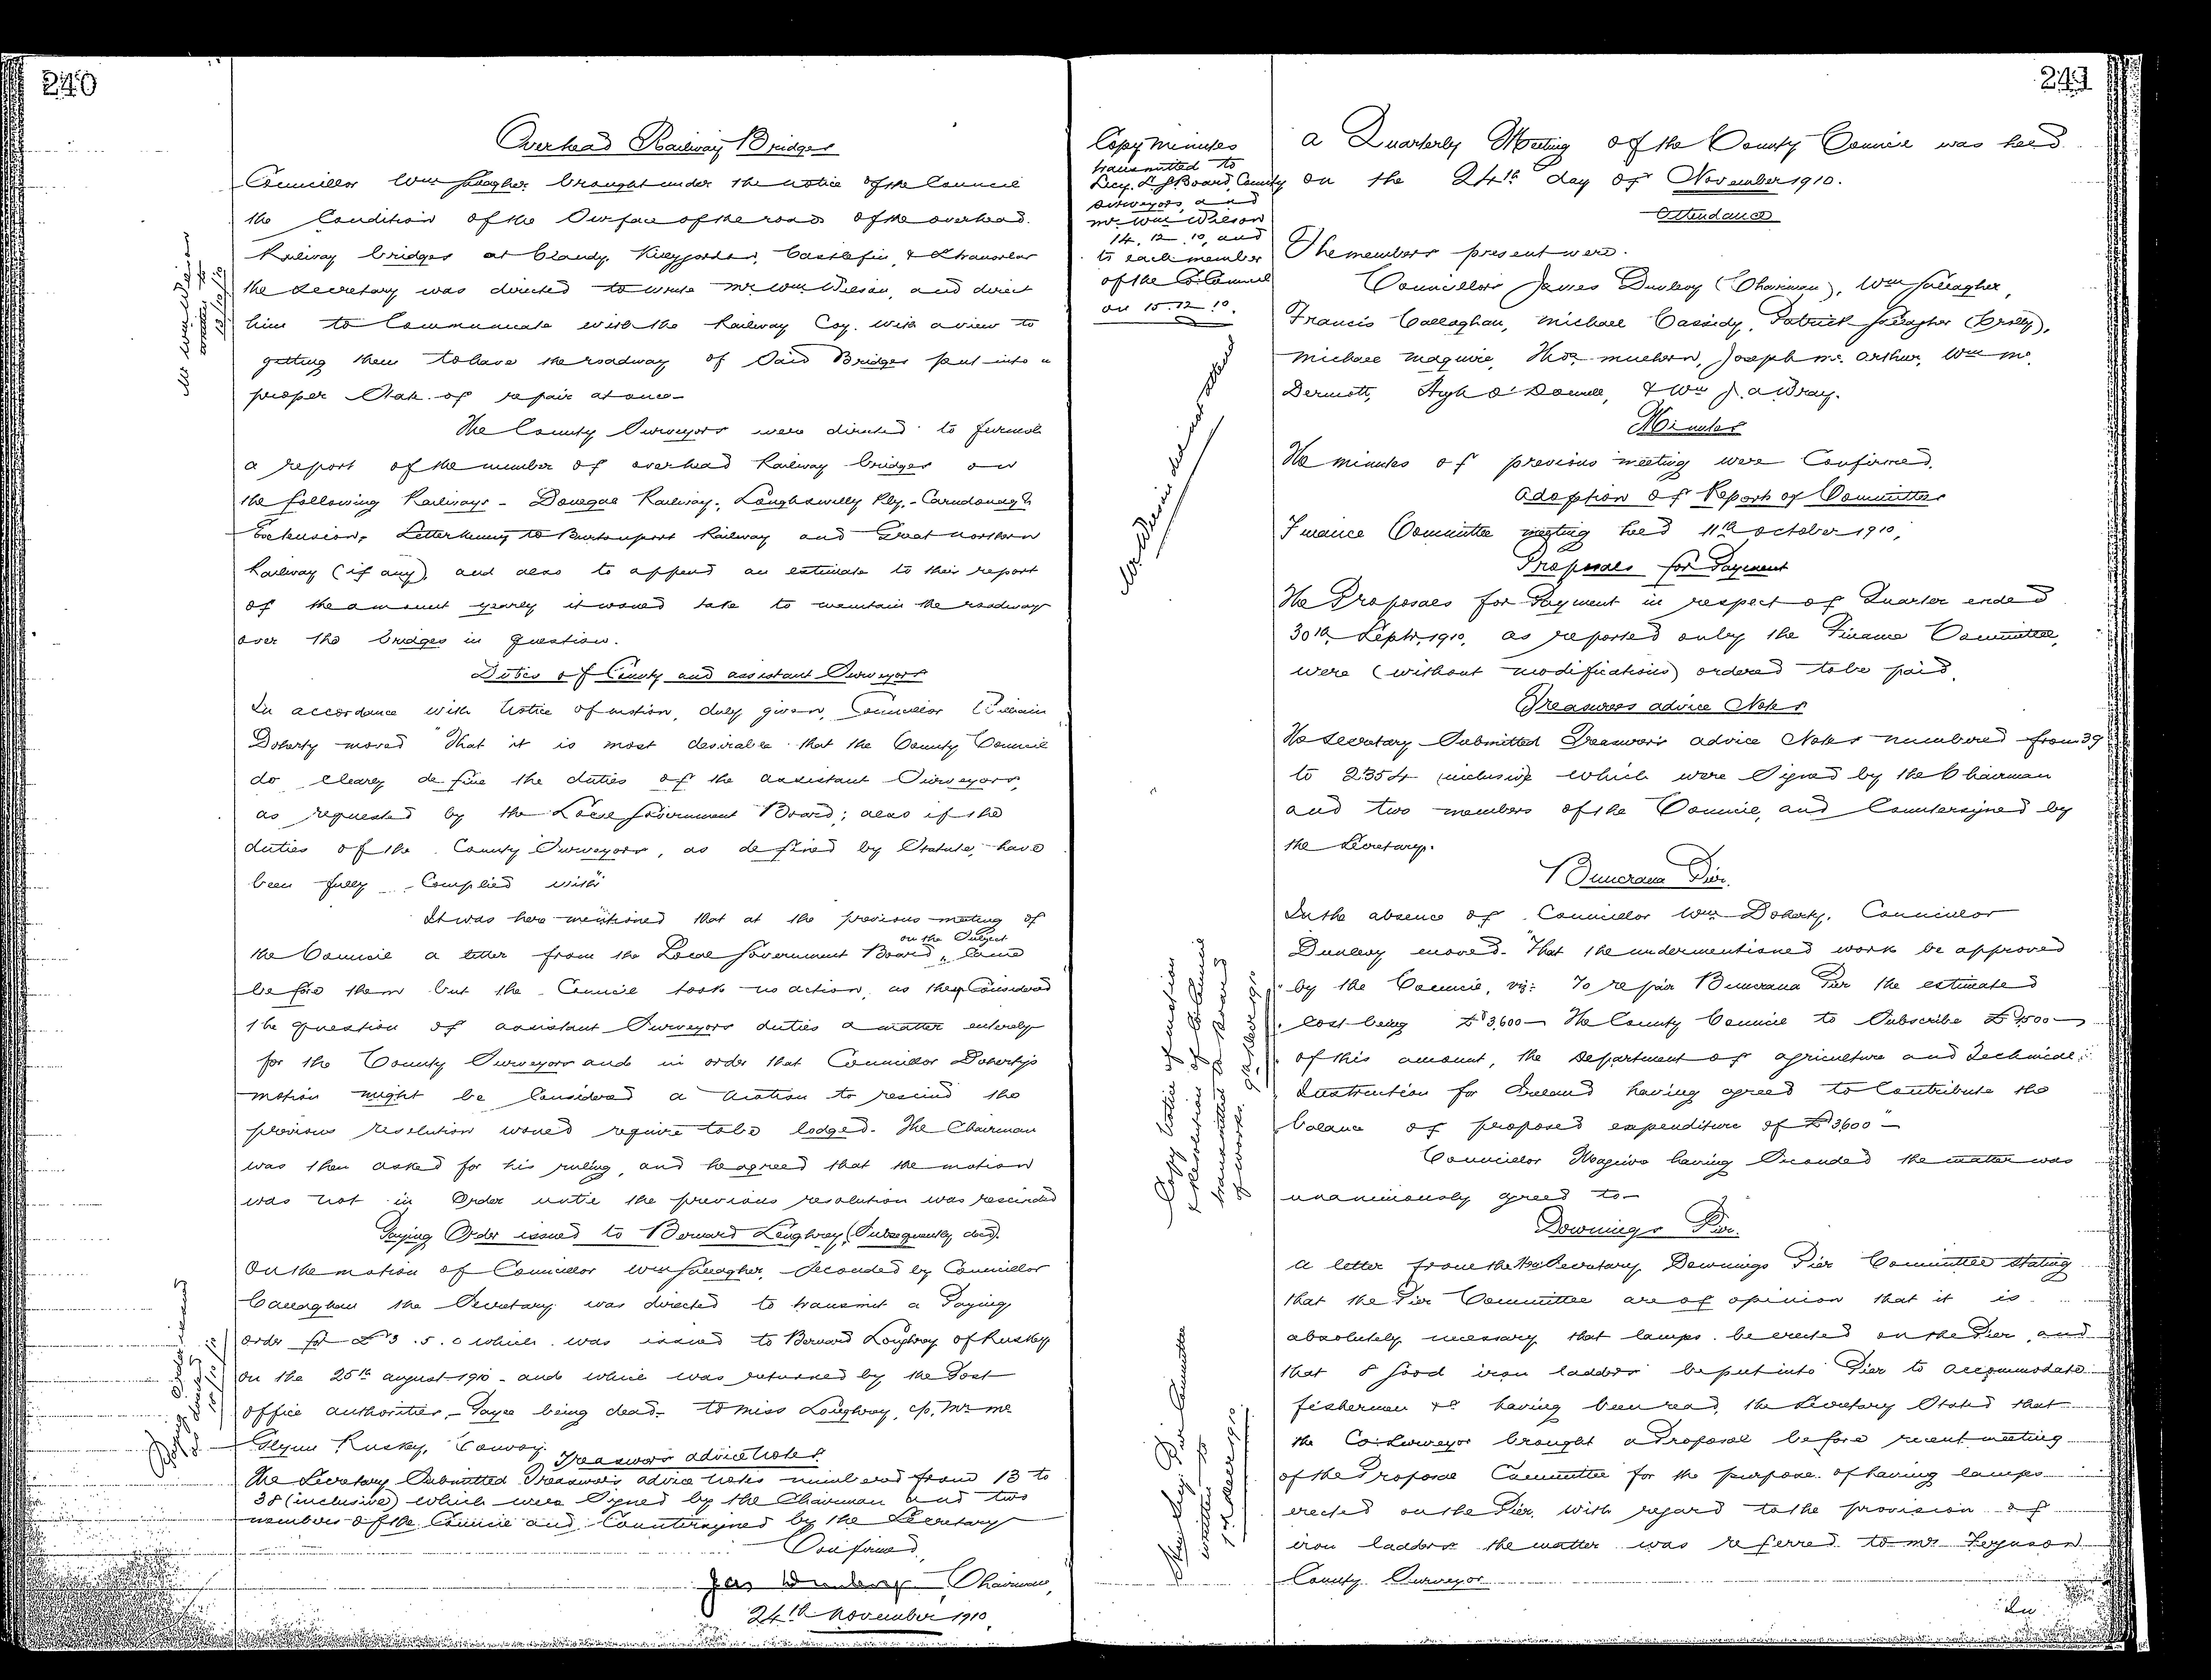 240
Overhead Railway Bridges
Councillor Wm Gallagher brought under the notice of the Council
the Condition of the Surface of the roads of the overhead
Railway bridges at Clady, Killygordon, Castlefin, & Stranorlar
the Secretary was directed to write Mr. Wm Wilson, and direct
him to Communicate with the Railway Coy. with a view to
getting them to have the roadway of Said Bridges put into a
proper State of repair at once.
The County Surveyors were directed to furnish
a report of the number of overhead Railway bridges on
the following Railways - Donegal Railway, Loughswilly Rly, - Carndonagh
Extension, Letterkenny to Burtonport Railway and Great Northern
Railway (if any) and also to append an estimate to their report
of the amount yearly it would take to maintain the roadways
over the bridges in question.
Duties of County and assistant Surveyors
In accordance with Notice of motion, duly given, Councillor William
Doherty moved "That it is most desirable that the County Council
do clearly define the duties of the assistant Surveyors,
as requested by the Local Government Board; also if the
duties of the County Surveyors, as defined by Statute, have
been fully Complied with"
It was here mentioned that at the previous meeting of
the Council a letter from the Local Government Board on the Subject came
before them but the Council took no action, as they Considered
the question of assistant Surveyors duties a matter entirely
for the County Surveyors and in order that Councillor Doherty's
motion might be Considered a motion to rescind the
previous resolution would require to be lodged. The Chairman
was then asked for his ruling, and he agreed that the motion
was not in Order until the previous resolution was rescinded
Paying Order issued to Bernard Loughrey (Subsequently decd).
On the motion of Councillor Wm Gallagher, Seconded by Councillor
Callaghan the Secretary was directed to transmit a Paying
order for £3.5.0 which was issued to Bernard Loughrey of Rusky
on the 25th august 1910 - and which was returned by the Post
office authorities, - Payee being dead - to Miss Loughrey, c/o. Mr. Mc
Glynn Rusky, Convoy.
Treasurers advice Notes
The Secretary Submitted Treasurer's advice Notes numbered from 13 to
38 (inclusive) which were Signed by the Chairman and two
members of the Council and Countersigned by the Secretary
Confirmed,
Jas Dunlevy Chairman,
24th November 1910
Mr Wm Wilson
written to
Paying Order
241
Copy Minutes
transmitted to
Secy. L. G Board, County
Surveyors and
Mr. Wm Wilson
14.12.10, and
to each member
of the Co. Council
on 15.12.10.
A Quarterly Meeting of the County Council was held
on the 24th day of November 1910.
Attendance
The members present were.
Councillors James Dunlevy (Chairman), Wm Gallagher,
Francis Callaghan, Michael Cassidy, Patrick Gallagher (Brolly),
Michael Maguire, Thos. Mulhern, Joseph Mc Arthur, Wm Mc
Dermott, Hugh O'Donnell, & Wm J. A Wray.
Minutes
The minutes of previous meeting were Confirmed.
Adoption of Report of Committee
Finance Committee meeting held 11th October 1910,
Proposals for Payment
The Proposals for Payment in respect of Quarter ended
30th Septr. 1910, as reported on by the Finance Committee,
were (without modifications) ordered to be paid.
Treasurers advice Notes
The Secretary Submitted Treasurer's advice Notes numbered from 39
to 2354 inclusive which were Signed by the Chairman
and two members of the Council, and Countersigned by
the Secretary.
Buncrana Pier.
In the absence of Councillor Wm Doherty, Councillor
Dunlevy moved - "That the undermentioned work be approved
by the Council, viz: To repair Buncrana Pier the estimated
cost being £3,600 - The County Council to Subscribe
of this amount, the Department of Agriculture and Technical
Instruction for Ireland having agreed to Contribute the
balance of proposed expenditure of £3600 -
Councillor Maguire having Seconded the matter was
unanimously agreed to -
Downings Pier.
A letter from the Hon Secretary Downings Pier Committee stating
that the Pier Committee are of opinion that it is
absolutely necessary that lamps be erected on the Pier, and
that 8 good iron ladders be put into Pier to accommodate
fishermen &c having been read, the Secretary Stated that
the Co. Surveyor brought a Proposal before recent meeting
of the Proposal Committee for the purpose of having lamps
erected on the Pier, with regard to the provision of
iron ladders the matter was referred to Mr Ferguson
County Surveyor
In
Copy Notice of motion
& Resolution of Co. Council
transmitted to Board
of works. 9th Decr 1910
Hon Secy. Pier Committee
written to
1st Decr 1910